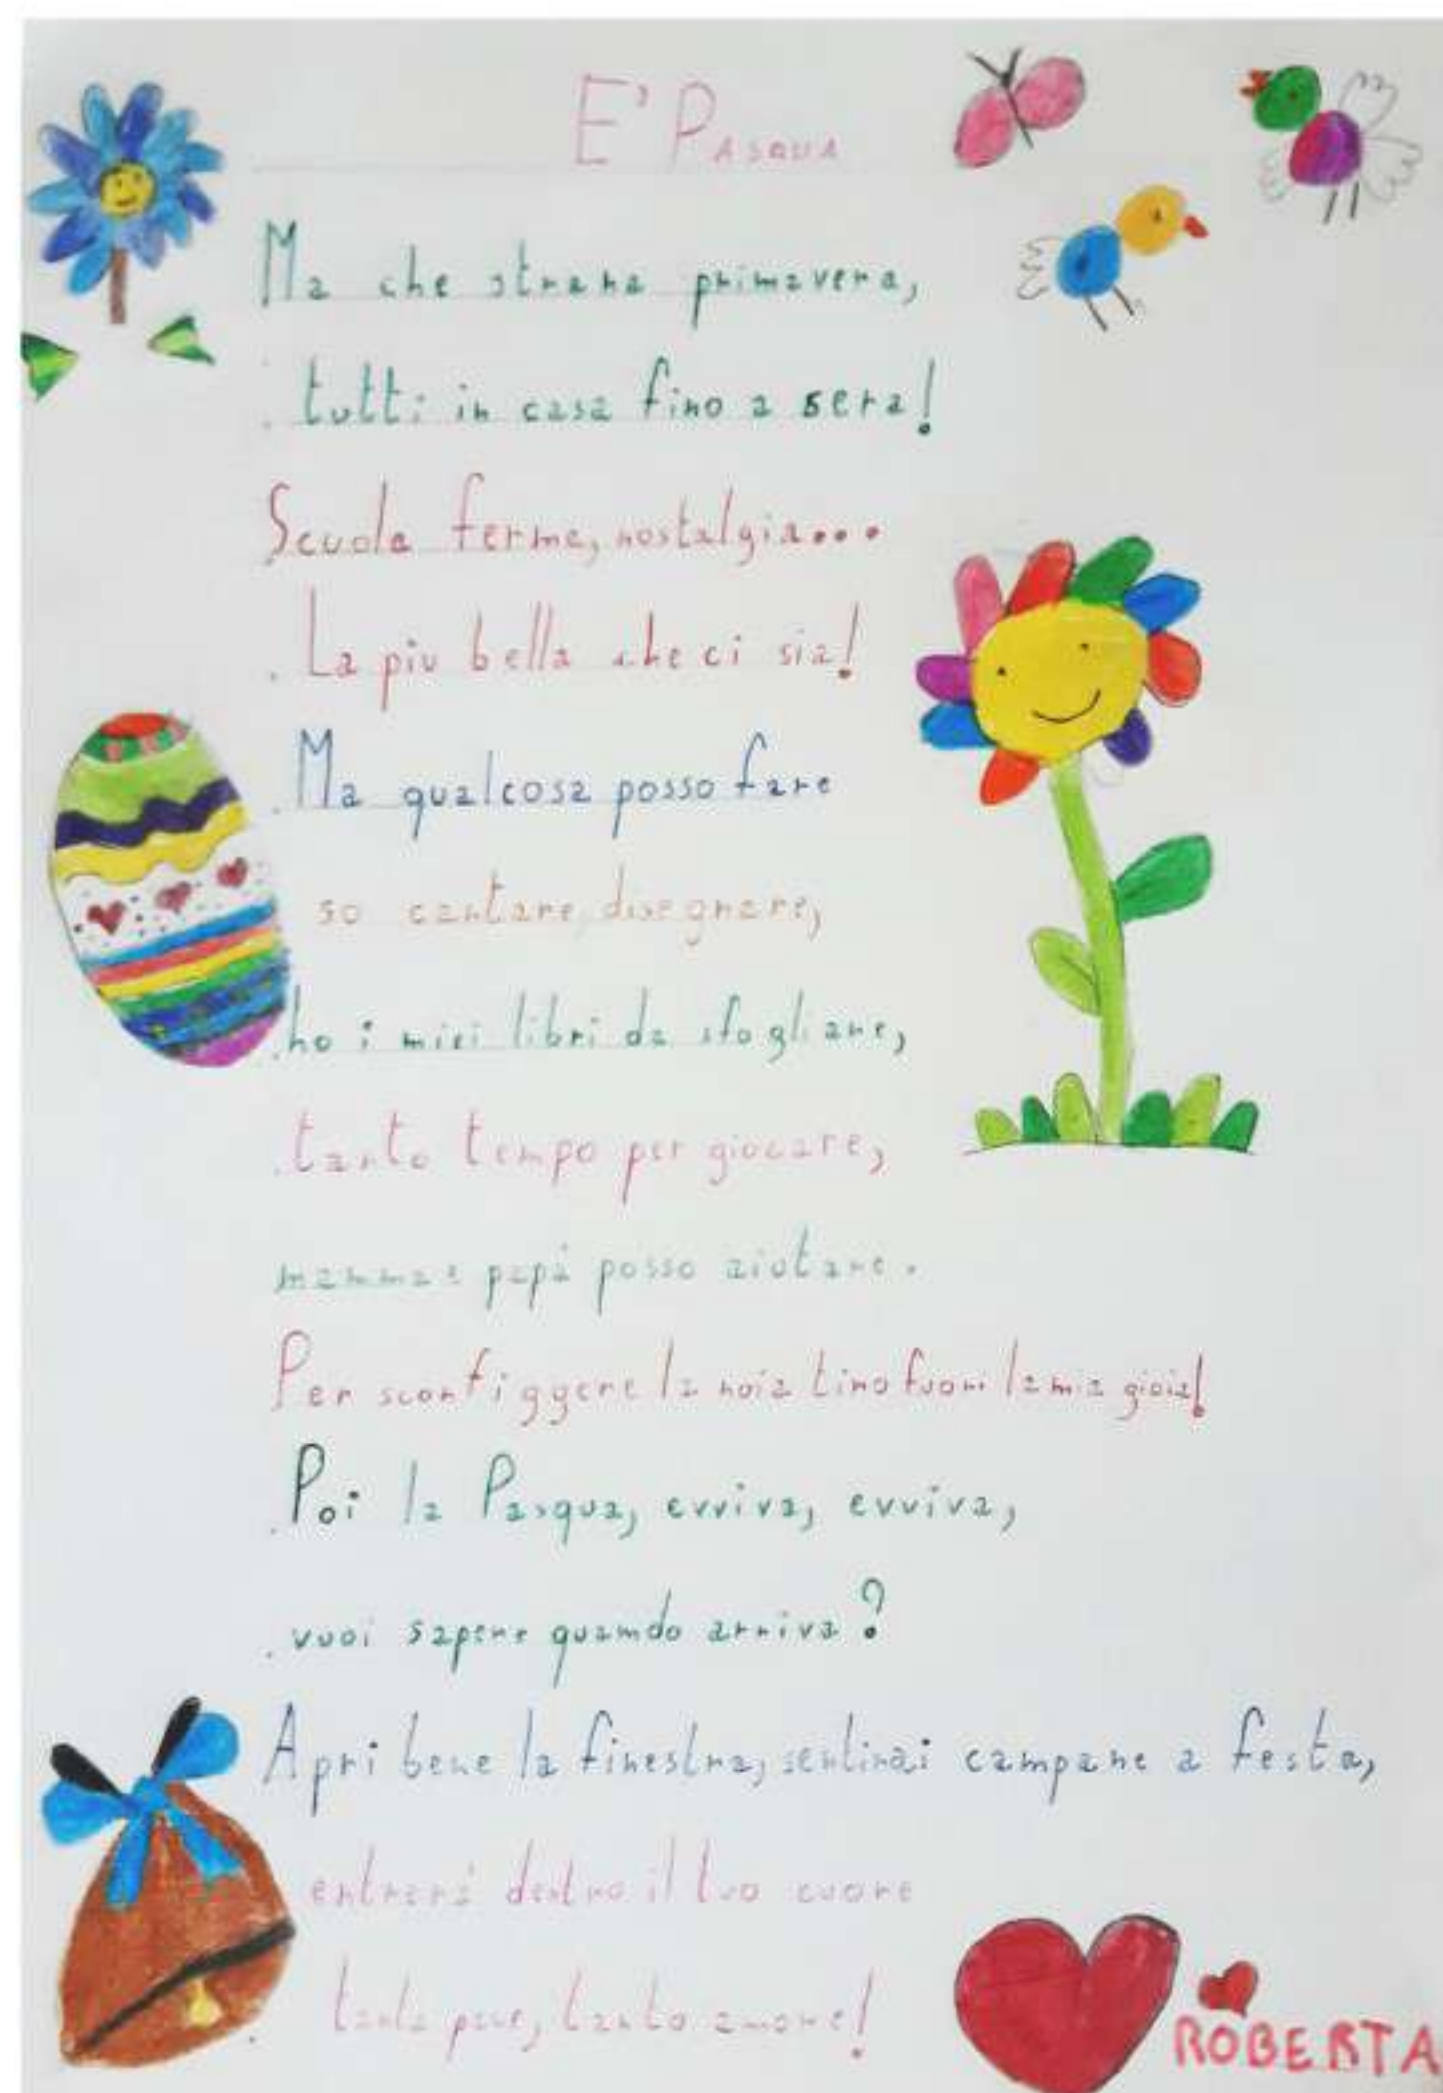 E' PASQUA
Ma che strana primavera,
tutti in casa fino a sera!
Scuole ferme, nostalgia...
La piu bella che ci sia!
Ma qualcosa posso fare
so cantare, disegnare,
ho i miei libri da sfogliare,
tanto tempo per giocare,
mamma e papà posso aiutare.
Per sconfiggere la noia tiro fuori la mia gioia!
Poi la Pasqua, evviva, evviva,
vuoi sapere quando arriva?
Apri bene la finestra, sentirai campane a festa,
entrerà dentro il tuo cuore
tanta pace, tanto amore!
ROBERTA